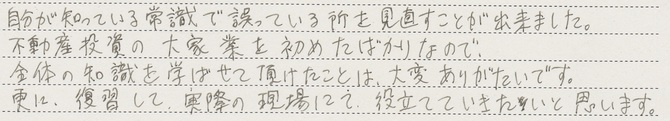 自分が知っている常識で誤っている所を見直すことが出来ました。
不動産投資の大家業を初めたばかりなので、
全体の知識を学ばせて頂けたことは、大変ありがたいです。
更に、復習して、実際の現場にて、役立てていきたいと思います。